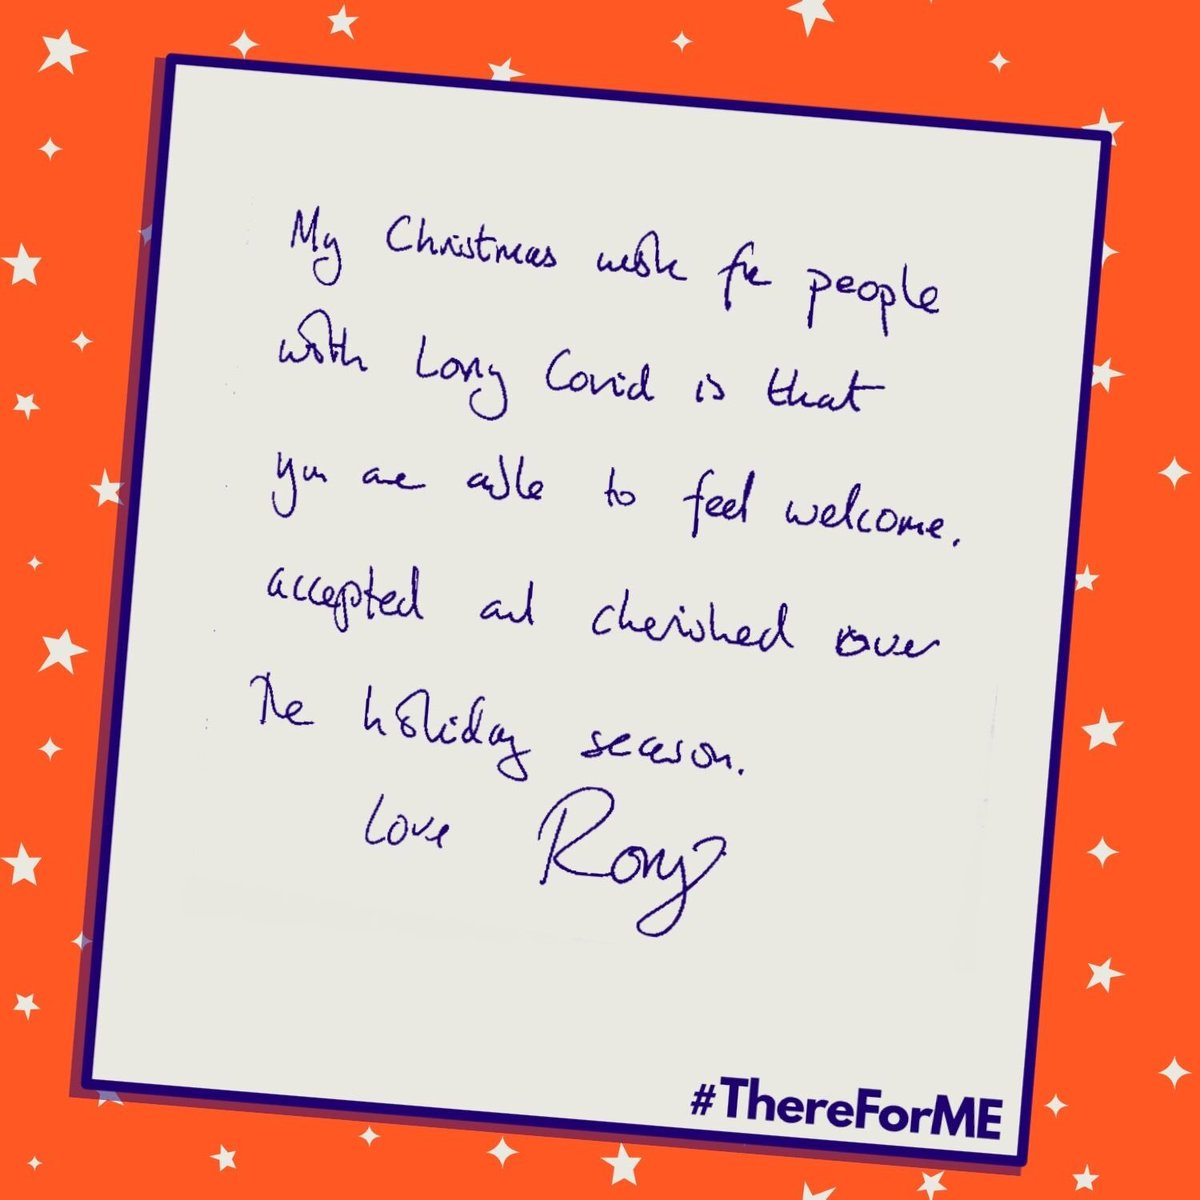 My Christmas wish for people
with Long Covid is that
you are able to feel welcome,
accepted and cherished over
the holiday season.
Love Rory
#ThereForME